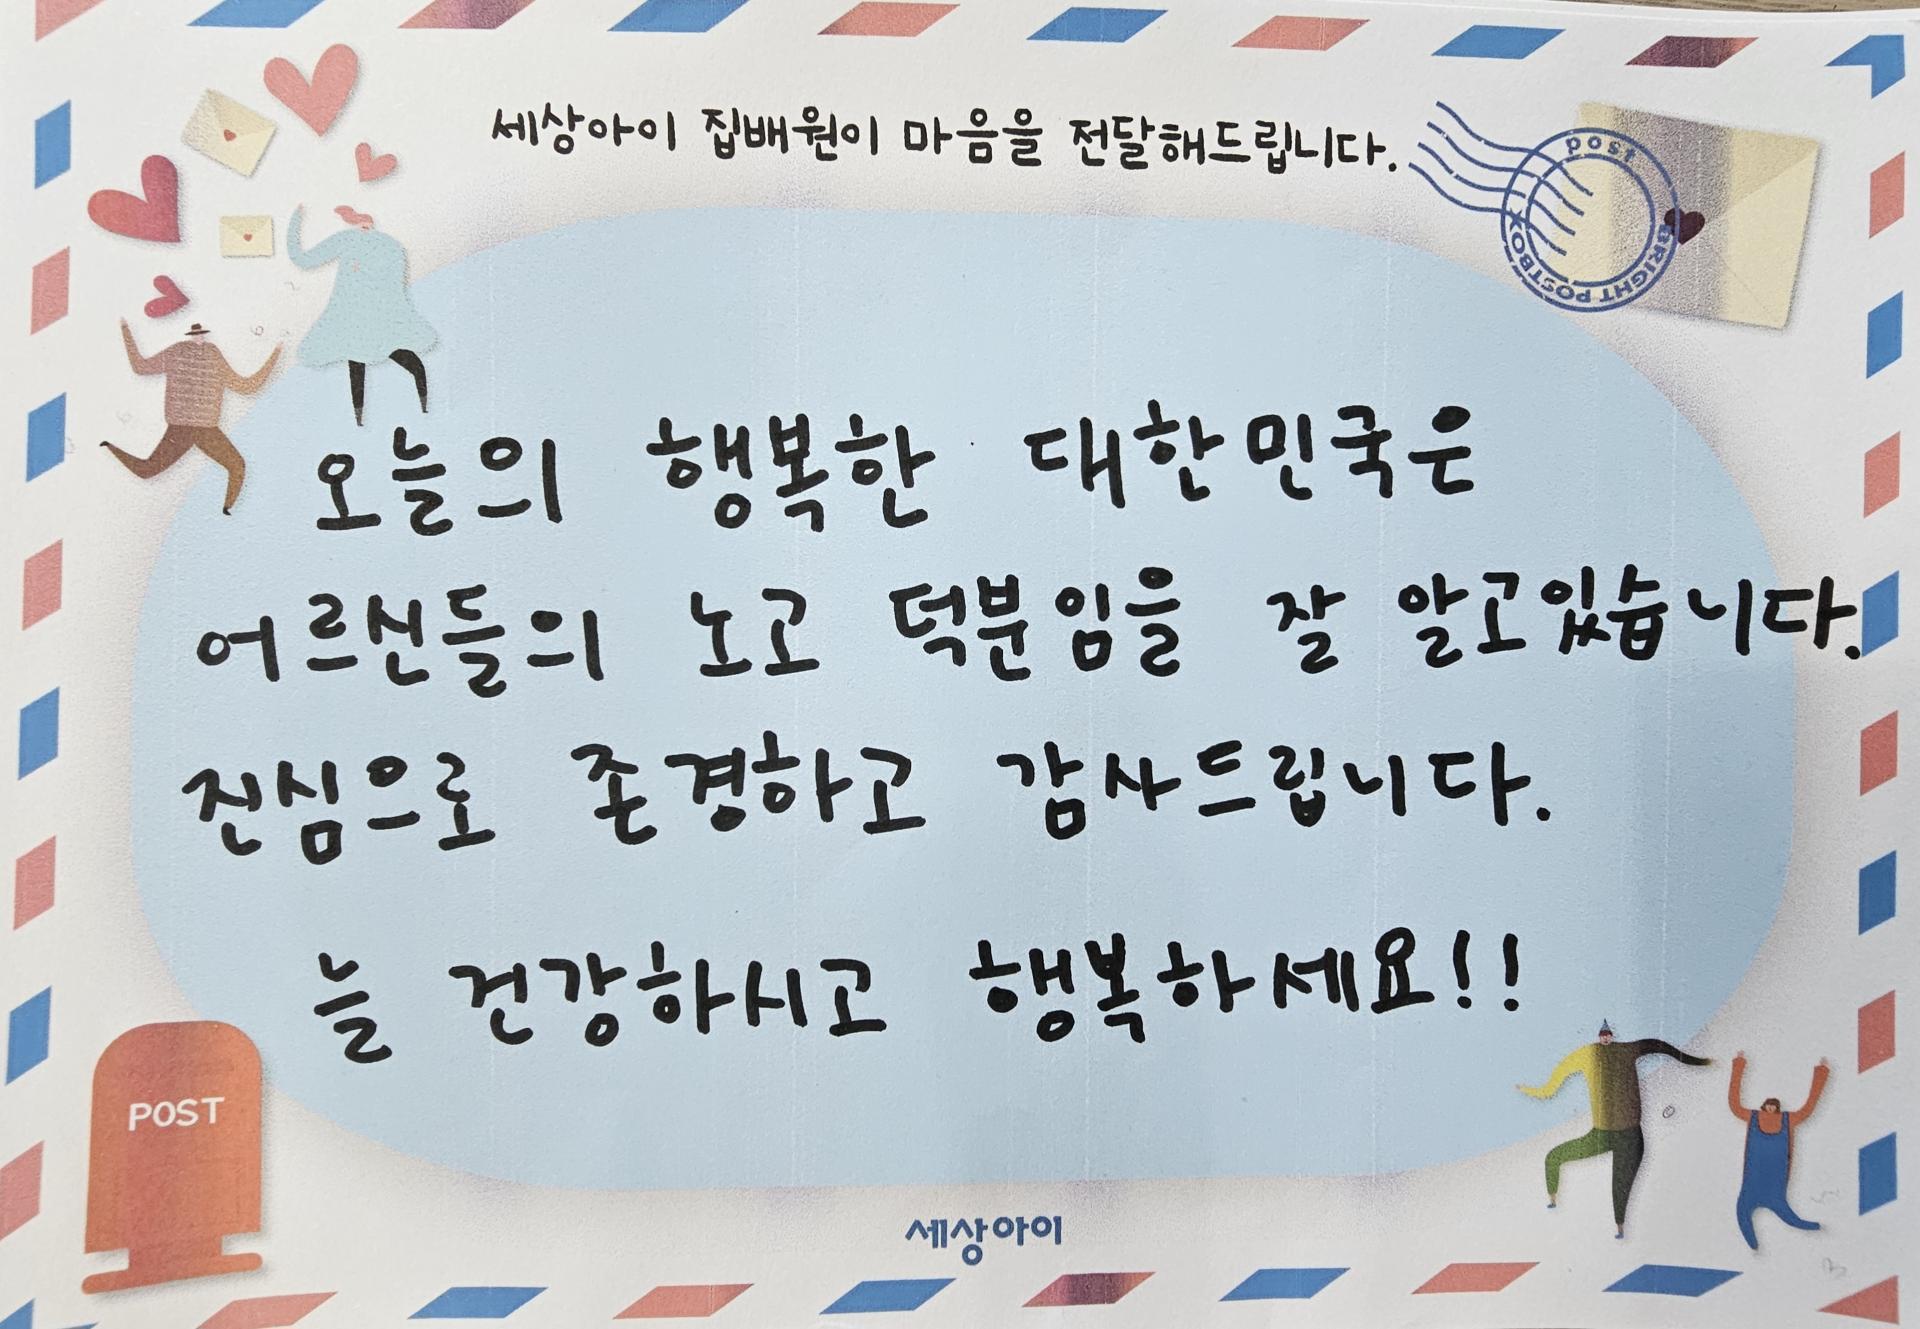 세상아이 집배원이 마음을 전달해드립니다.
post
BRIGHT POSTBOX
오늘의 행복한 대한민국은
어르신들의 노고 덕분임을 잘 알고있습니다.
진심으로 존경하고 감사드립니다.
늘 건강하시고 행복하세요!!
POST
세상아이